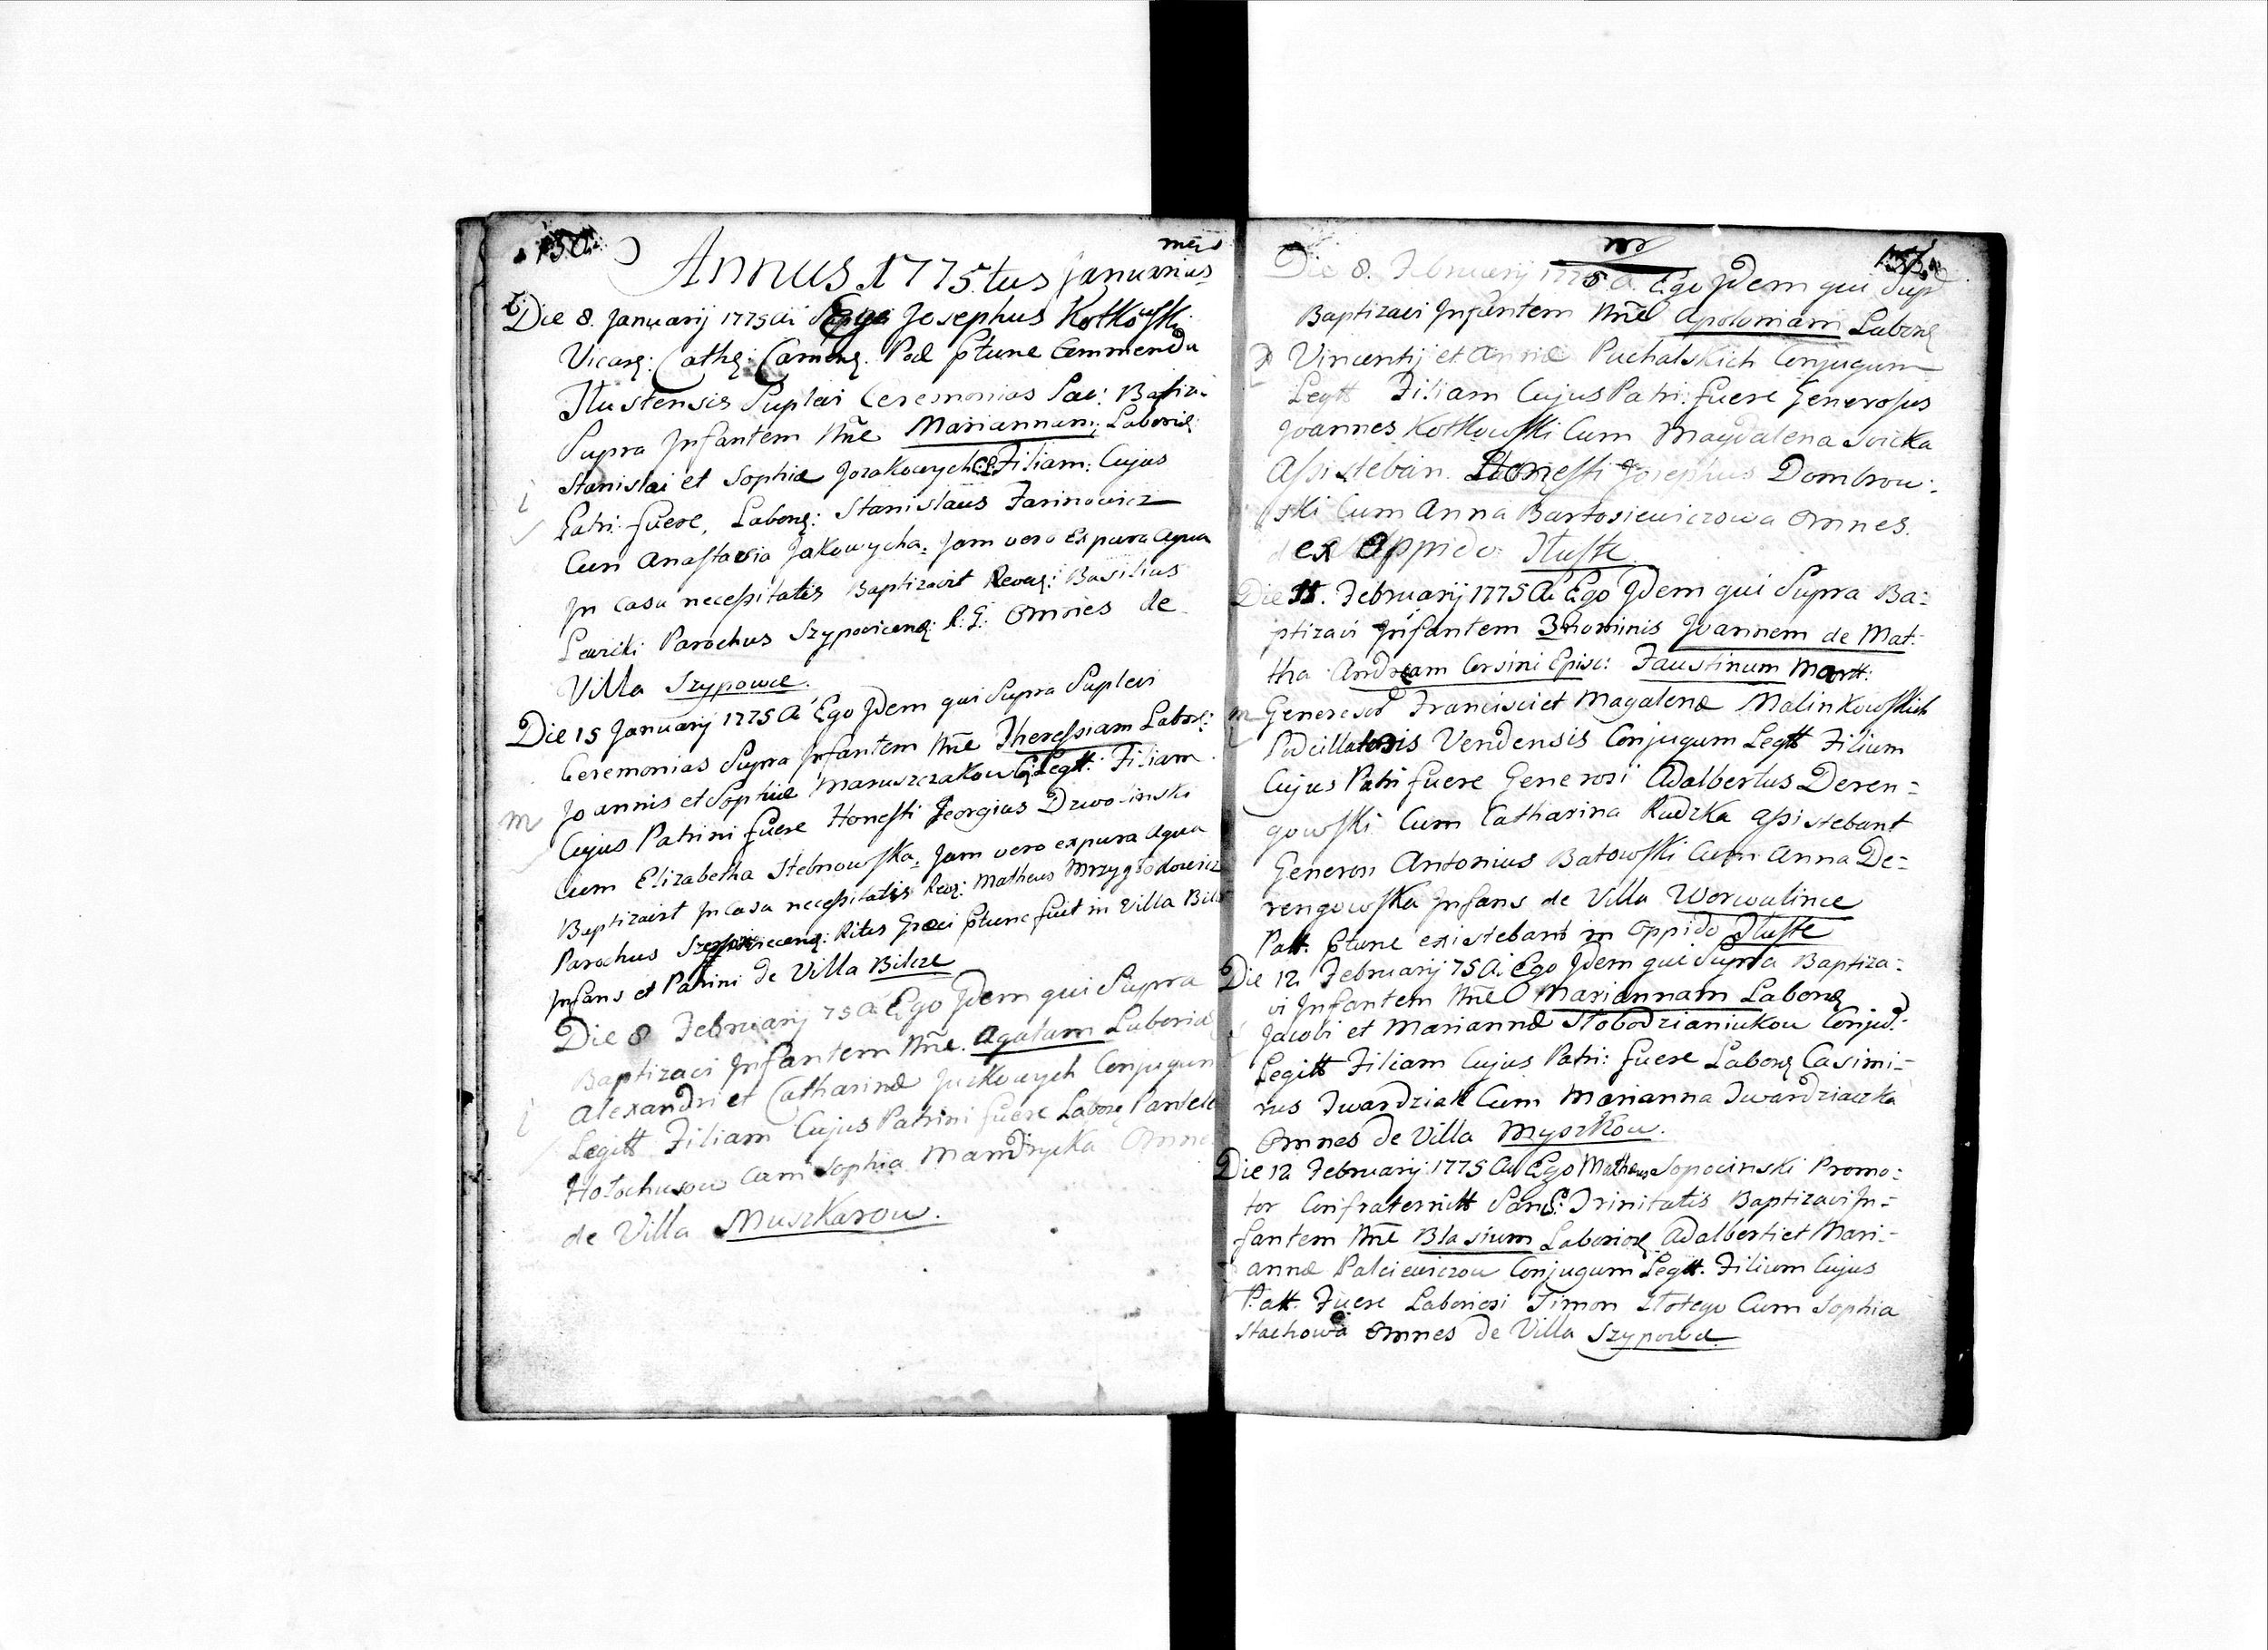 150
mēs
Annus 1775.tus Januarius
Die 8. Januarij 1775 Ai Ego Josephus Kotkowski
Vicarę: Cathę: Camenę. Pod ptunc Commenda
Tlustensis Suplevi Ceremonias Sac: Baptiz.
Supra Infantem Nñe Mariannam Laborię:
Stanislai et Sophiæ Jozakowych CL Filiam: Cujus
i Patri: fuere, Laborię: Stanislaus Farinowicz
Cum Anastasia Jakowycha. Jam vero Ex pura aqua
In Casu necessitatis Baptizavit Reverę: Basilius
Lewicki Parochus Szypovicenę: R: G: Omnes de
Villa Szypowce.
Die 15 Januarij 1775 Ai Ego Jdem qui Supra Suplevi
Ceremonias Supra Infantem Nñe Theressiam Labor:
Joannis et Sophiæ Maruszczakow CLegtt: Filiam
m Cujus Patrini fuere Honesti Georgius Dzwolinski
Cum Elizabetha Stebnowska. Jam vero ex pura aqua
Baptizavit In Casu necessitatis Rev: Matheus Mrzygłodowicz
Parochus Rites Græci ptunc fuit in Villa Bilc
Infans et Patrini de Villa Bilcze
Die 8 February 75 A. Ego Jdem qui Supra
Baptizavi Infantem Nñe. Agatam Laborię
Alexandri et Catharinæ Juzkowych Conjugum
i Legitt Filiam Cujus Patrini fuere Laborę Pantele
Hołochusow cum Sophia Mandrycka Omne
de Villa Muszkarow.
151
Die 8. February 1775 A. Ego Jdem qui Sup
Baptizavi Infantem Nñe Apoloniam Laborę
Vincentij et Annæ Puchalskich Conjugum
Legtt Filiam Cujus Patri: fuere Generosus
Joannes Kotkowski Cum Magdalena Soicka
Assisteban. Honesti Josephus Dombrow:
ski Cum Anna Bartosiewiczowa Omnes.
ex Oppido Tłuste
Die 11. February 1775 Ai Ego Jdem qui Supra Ba:
ptizavi Infantem 3nominis Joannem de Mat:
tha Andream Corsini Episc: Faustinum Martt:
m Generosod Francisci et Magalenæ Malinkowskich
Podcillatoris Vendensis Conjugum Legtt Filium
Cujus Patri fuere Generosi Adalbertus Deren=
gowski Cum Catharina Rudzka Assistebant
Generosi Antonius Batowski Cum Anna De=
rengowska Infans de Villa Worwolince
Patt. ptunc existebant in Oppido Tłuste
Die 12 February 75 A. Ego Jdem qui Supra Baptiza:
vi Infantem Nñe Mariannam Laborę
Jacobi et Mariannæ Słobodzianiukow Conjud.
Legitt Filiam Cujus Patri: fuere Laborę Casimi=
rus Twardziak Cum Marianna Twardziaczka
Omnes de Villa Myszkow.
Die 12 February 1775 Ai Ego Matheus Sopocinski Promo:
tor Confraternitt Sanc: Trinitatis Baptizavi In=
fantem Nñe Blasium Laboriorę Adalberti et Mari=
annæ Palciewiczow Conjugum Legtt. Filium Cujus
Patt. Fuere Laboriosi Timon Złotego Cum Sophia
Stachowa Omnes de Villa Szypowce